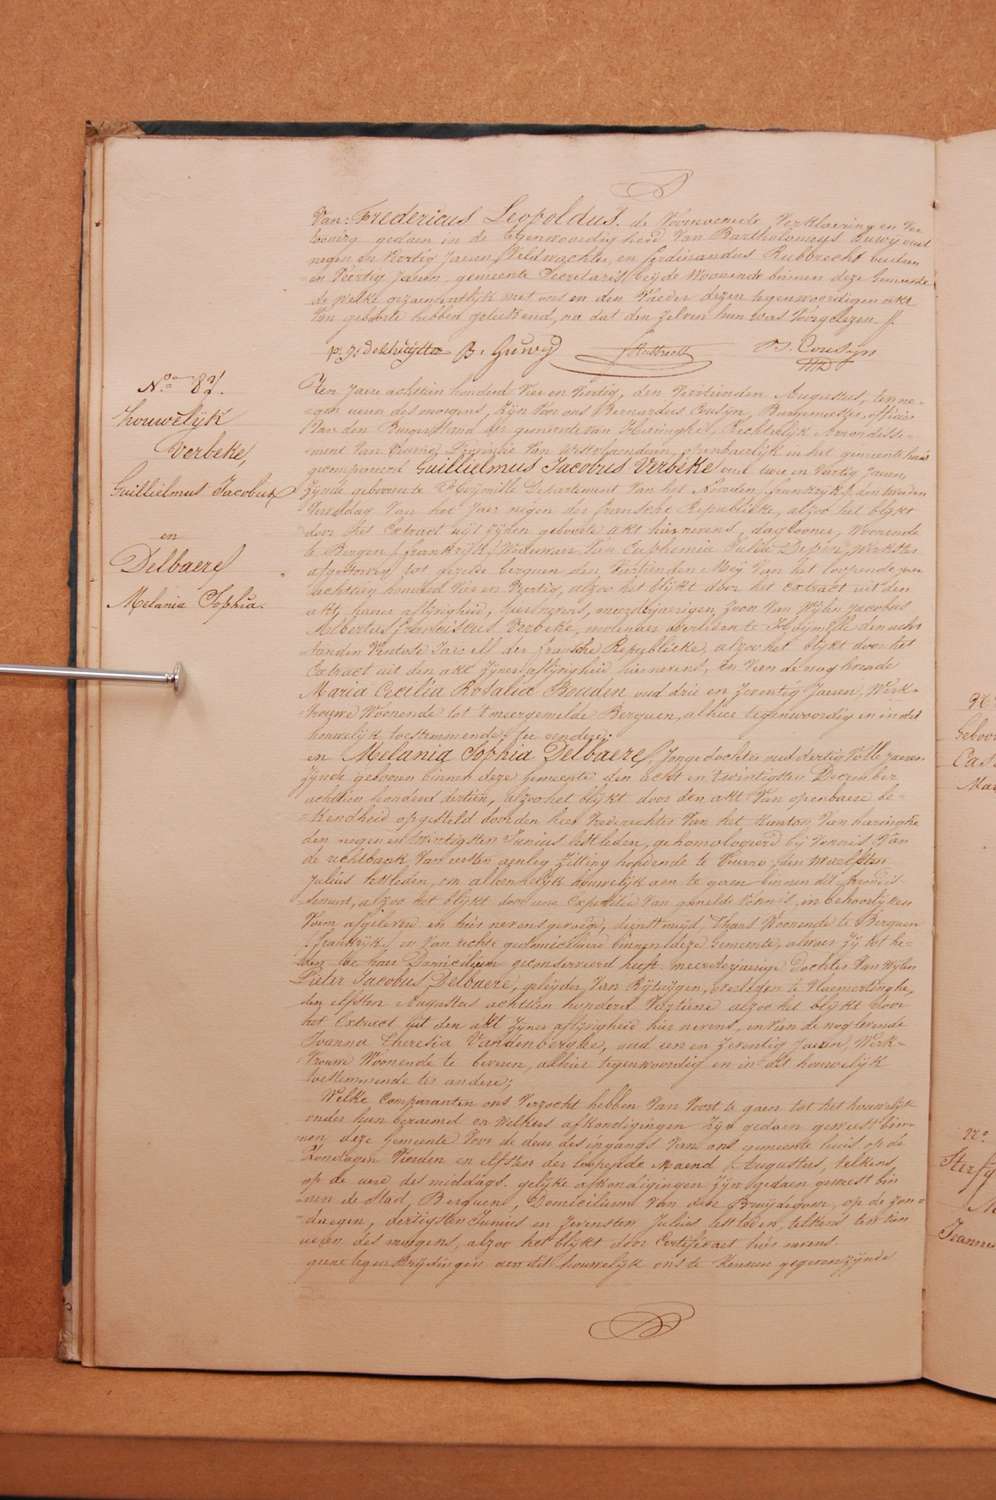 Van: Fredericus Leopoldus. de Voornoemde Verklaering en Ver
tooning gedaen in de tegenwoordigheid van Bartholomeus Guwy oud
negen en Veertig Jaeren Veldwachter, en Ferdinandus Rubbrecht
en Veertig Jaeren gemeente Secretaris beyde Woonende binnen deze Gemeente
de Welke gezaementlyk met ons en den Vader dezen tegenwoordigen akt
Van geboorte hebben geteekend, na dat den zelven hun was Voorgelezen
B. Guwy B. Cousyn
No. 8
houwelyk
Verbeke,
Guillielmus Jacobus
en
Delbaere
Melania Sophia.
Ten Jaere achtien honderd Vier en Veertig, den Veertienden Augustus, ten ne-
gen ueren des morgens, Zyn Voor ons Bernardus Cousyn, Burgemeester officier
Van den Burgerstand der gemeente van Haringhe, Rechterlyk Arrondisse-
ment Van Veurne, Provincie Van Westvlaenderen, openbaerlyk in het gemeente huis
gecompareerd Guillielmus Jacobus Verbeke oud twee en Veertig Jaeren,
Zynde geboren te Departement Van het Noorden, frankryk, den
dag Van het Jaer negen der fransche Republieke, alzoo het blykt
door het Extract uyt Zynen geboorte akt hiernevens, daglooner, Woonende
te Bergen frankryk, Weduwaer Van Euphemia Julia Depin, Werkster
afgestorven tot gezeide berguen den Mey Van het loopende jaer
achttien honderd Vier en Veertig, alzoo het blykt door het Extract uit den
akt haerer aflyvigheid, hiernevens, meerderjaerigen Zoon Van Wylen Jacobus
Albertus franciscus Verbeke, molenaer overleden te den acht
sten Ventose Jaer elf der fransche Republieke, alzoo het blykt door het
Extract uit den akt zyner aflyvigheid hiernevens, en Van de nog levende
Maria Cecilia Rosalia Bouden oud drie en Zeventig Jaeren, Werk-
vrouwe Woonende tot 't meergemelde Berguen, alhier tegenwoordig en in dit
houwelyk toestemmende, ter eender;
en Melania Sophia Delbaere, Jonge dochter oud dertig Volle jaeren
Zynde geboren binnen deze Gemeente den acht en twintigsten December
achttien honderd dertien, alzoo het blykt door den akt Van openbaere be-
kendheid opgesteld door den heer Vrederechter Van het Kanton Van haringhe
den negen en twintigsten Junius lestleden, gehomologeerd by Vonnis Van
de rechtbank Van eersten aenleg Zitting houdende te Veurne den twaelfsten
Julius lestleden, om alleenelyk houwelyk aen te gaen binnen dit arrondis-
sement, alzoo het blykt door eene Expeditie Van gemelde Vonnis, in behoorlyken
Vorm afgeleverd en hier nevens gevoegd, dienstmeid, thans Woonende te Berguen
frankryk, en Van rechte gedomicilieerd binnen deze Gemeente, alwaer Zy tot he-
den toe haer Domicilium geconserveerd heeft, meerderjaerige Dochter Van Wylen
Pieter Jacobus Delbaere, geleyder Van Rytuygen, overleden te Vlaemertinghe,
den elfsten Augustus achttien honderd Veertiene alzoo het blykt door
het Extract uit den akt zyner aflyvigheid hier nevens, en Van de nog levende
Joanna Theresia Vandenberghe, oud een en Zeventig Jaeren, Werk-
Vrouwe Woonende te beveren, alhier tegenwoordig en in dit houwelyk
toestemmende ter andere;
Welke Comparanten ons Verzocht hebben Van Voort te gaen tot het houwelyk
onder hun beraemd en Welkers afkondigingen Zyn gedaen geweest bin-
nen deze Gemeente Voor de deur des ingangs Van ons gemeente huis op de
Zondagen Vierden en elfsten der loopende Maend Augustus, telkens
op de uere des middags. gelyke afkondigingen Zyn gedaen geweest bin
nen de Stad Berguen, Domicilium van den Bruydegom, op de zon-
dagen, dertigsten Junius en Zevensten Julius lestleden, telkens ten tien
ueren des morgens, alzoo het blykt door Certificaet hier nevens.
geene tegenstrydingen aen dit houwelyk ons te Kennen gegeven zynde